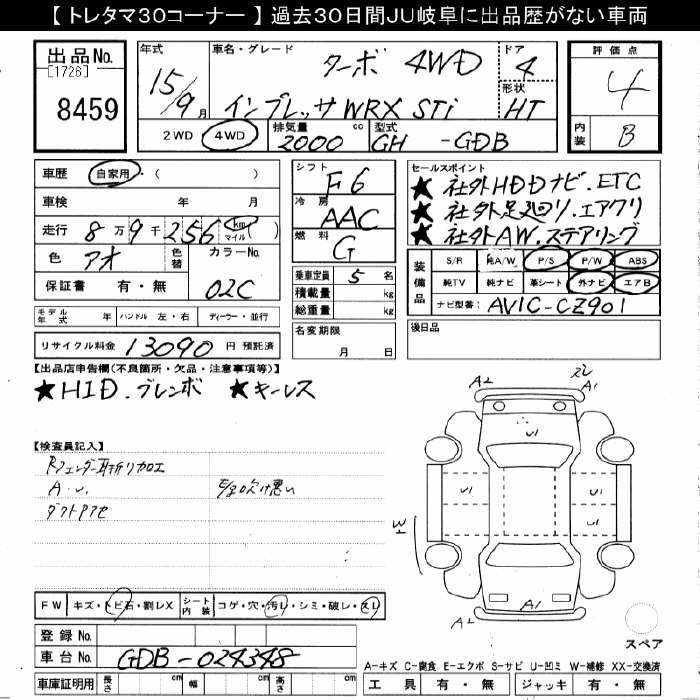 【トレタマ30コーナー】過去30日間JU岐阜に出品歴がない車両
出品No.
[1726]
8459
年式
15/9月
車名・グレード
ターボ 4WD
インプレッサWRX STi
ドア
4
形状
HT
2WD 4WD
排気量
2000 cc
型式
GH -GDB
評価点
4
内装
B
車歴 自家用・(
車検 年 月
走行 8万9千256 km マイル
色 アオ
色替
カラーNo.
02C
保証書 有・無
シフト
F6
冷房
AAC
燃料
G
乗車定員 5名
積載量 kg
総重量 kg
名変期限
月 日
セールスポイント
★社外HDDナビ.ETC
★社外足廻り.エアクリ
★社外AW.ステアリング
装備品
S/R 純A/W P/S P/W ABS
純TV 純ナビ 革シート 外ナビ エアB
ナビ型番: AVIC-CZ901
後日品
モデル年式 ハンドル 左・右 ディーラー・並行
リサイクル料金 13090 円 預託済
【出品店申告欄(不良箇所・欠品・注意事項等)】
★HID.ブレンボ ★キーレス
【検査員記入】
Rフェンダー耳折リ加工
A.U.
ダクト
吹け悪い
A2
A1
U1
U1
U1
U1
W1
A2
A1
スペア
FW キズ・トビ石・割レX シート内装 コゲ・穴・汚レ・シミ・破レ・スレ
登録No.
車台No. GDB-024348
車庫証明用 長さ cm 幅 cm 高さ cm
A-キズ C-腐食 E-エクボ S-サビ U-凹ミ W-補修 XX-交換済
工具 有・無 ジャッキ 有・無